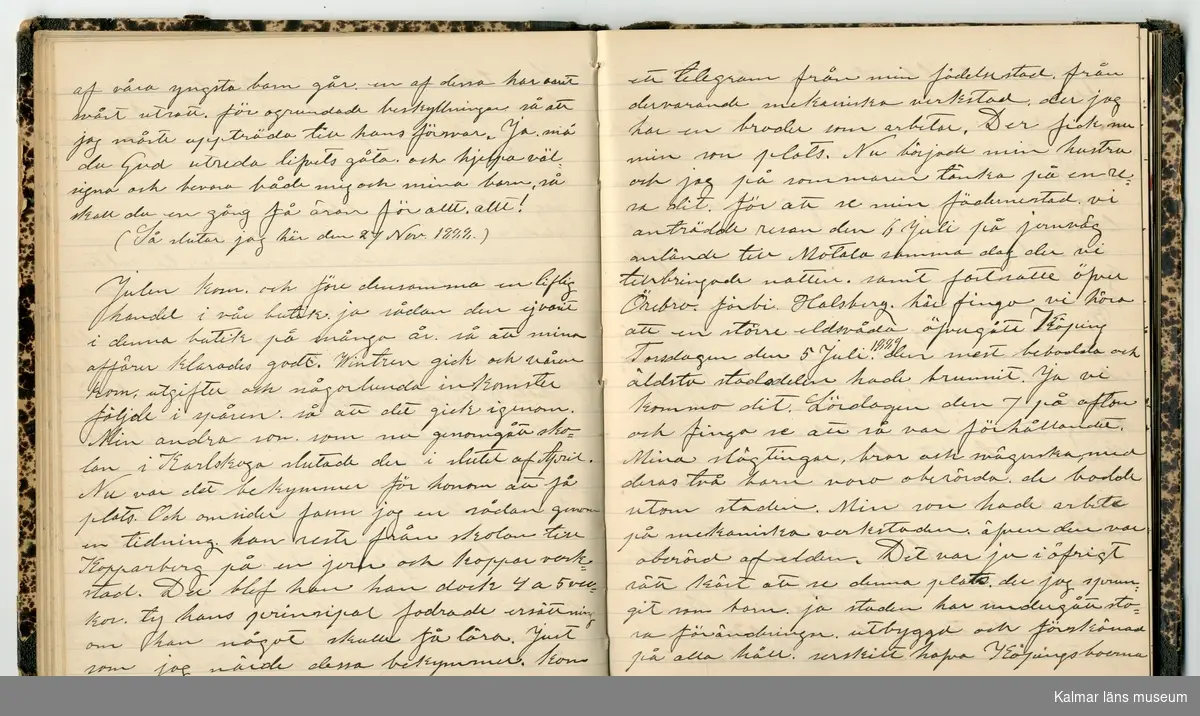 af våra yngsta barn går. en af dessa har varit
svårt utsatt. för ogrundade beskyllningar så att
jag måste uppträda till hans försvar. Ja. må
du Gud utreda lifvets gåta. och hjelpa väl-
signa och bevara både mig och mina barn, så
skall du en gång få äran för allt. allt!
(Så slutar jag här den 27 Nov. 1888.)
Julen kom. och före densamma en liflig
handel i vår butik. ja sådan den ej varit
i denna butik på många år. så att mina
affärer klarades godt. Vintren gick och våren
kom. utgifter och någorlunda inkomster
följde i spåren. så att det gick igenom.
Min andra son. som nu genomgått sko-
lan i Karlskoga slutade der i slutet af April.
Nu var det bekymmer för honom att få
plats. Och omsider fann jag en sådan genom
en tidning. han reste från skolan till
Kopparberg på en jern och koppar verk-
stad. Der blef han dock 4 a 5 vec-
kor. ty hans prinsipal fodrade ersättning
om han något skulle få lära. Just
som jag närde dessa bekymmer. kom
ett telegram från min födelsestad. från
dervarande mekaniska verkstad. der jag
har en broder som arbetar. Der fick nu
min son plats. Nu började min hustru
och jag på sommaren tänka på en re-
sa dit. för att se min födernestad. vi
anträdde resan den 6 Juli på jernväg
anlände till Motala samma dag der vi
tillbringade natten. samt fortsatte öfver
Örebro. förbi. Halsberg. här fingo vi höra
att en större eldsvåda öfvergått Köping
Torsdagen den 5 Juli. 1889. den mest bebodda och
äldsta stadsdelen hade brunnit. Ja vi
kommo dit. Lördagen den 7 på afton
och fingo se att så var förhållandet.
Mina slägtingar, bror och svägerska med
deras två barn voro oberörda. de bodde
utom staden. Min son hade arbete
på mekaniska verkstaden. äfven den var
oberörd af elden. Det var ju i öfrigt
rätt kärt att se denna plats. der jag sprun-
git som barn. ja staden har undergått sto-
ra förändringar. utbyggd och förskönad
på alla håll. serskilt hafva Köpingsboerna
Kalmar läns museum